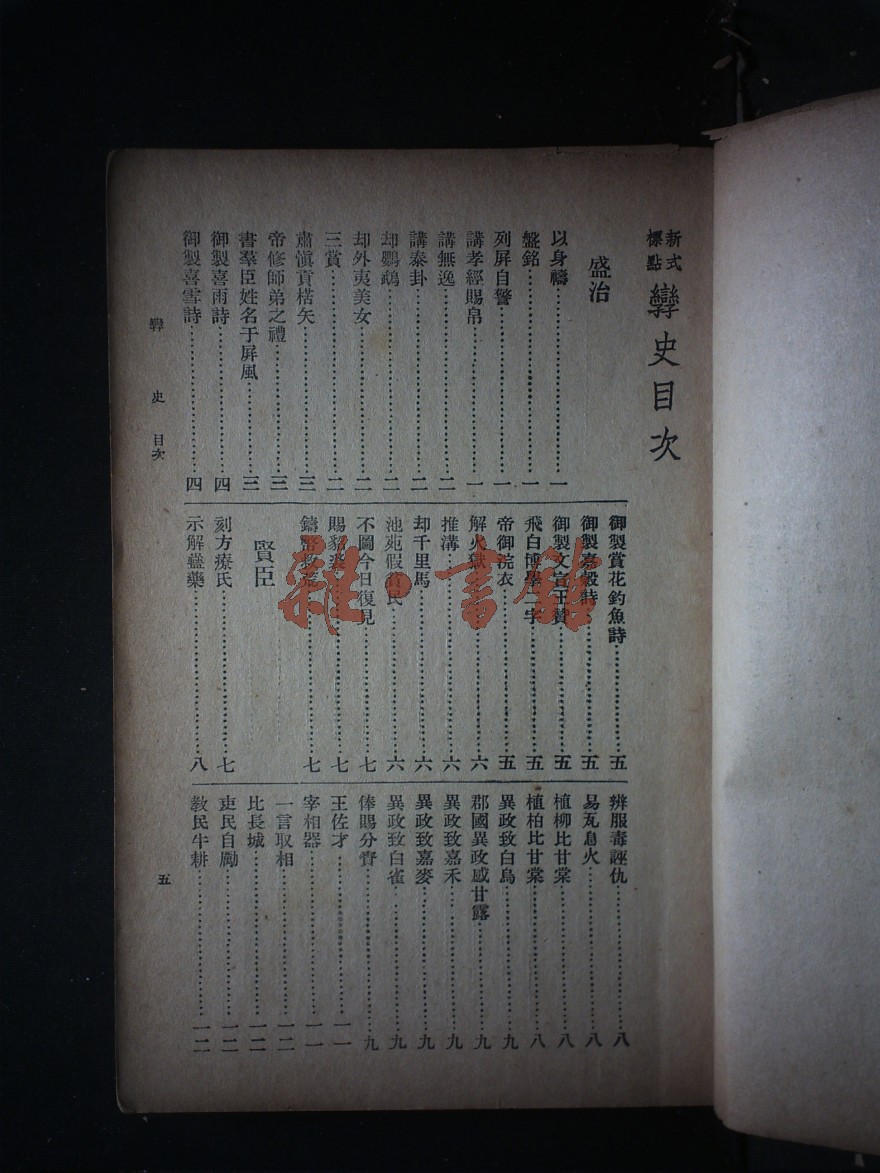 新式標點 孿史目次
盛治
以身禱……一
盤銘……一
列屏自警……一
講孝經賜帛……一
講無逸……二
講泰卦……二
却鸚鵡……二
却外夷美女……二
三賞……二
肅愼貢楛矢……三
帝修師弟之禮……三
書羣臣姓名于屛風……三
御製喜雨詩……四
御製喜雪詩……四
御製賞花釣魚詩……五
御製嘉穀詩……五
御製文宣王贊……五
飛白博學二字……五
帝御浣衣……五
解火獄……六
推溝……六
却千里馬……六
池苑假貧民……六
不圖今日復見……七
賜貂裘……七
鑄幣救荒……七
賢臣
刻方療氏……七
示解蠱藥……八
辨服毒誣仇……八
易瓦息火……八
植柳比甘棠……八
植柏比甘棠……八
異政致白烏……九
郡國異政感甘露……九
異政致嘉禾……九
異政致嘉麥……九
異政致白雀……九
俸賜分賚……九
王佐才……一一
宰相器……一一
一言取相……一二
比長城……一二
吏民自勵……一二
敎民牛耕……一二
孿史 目次
五
雜·書館